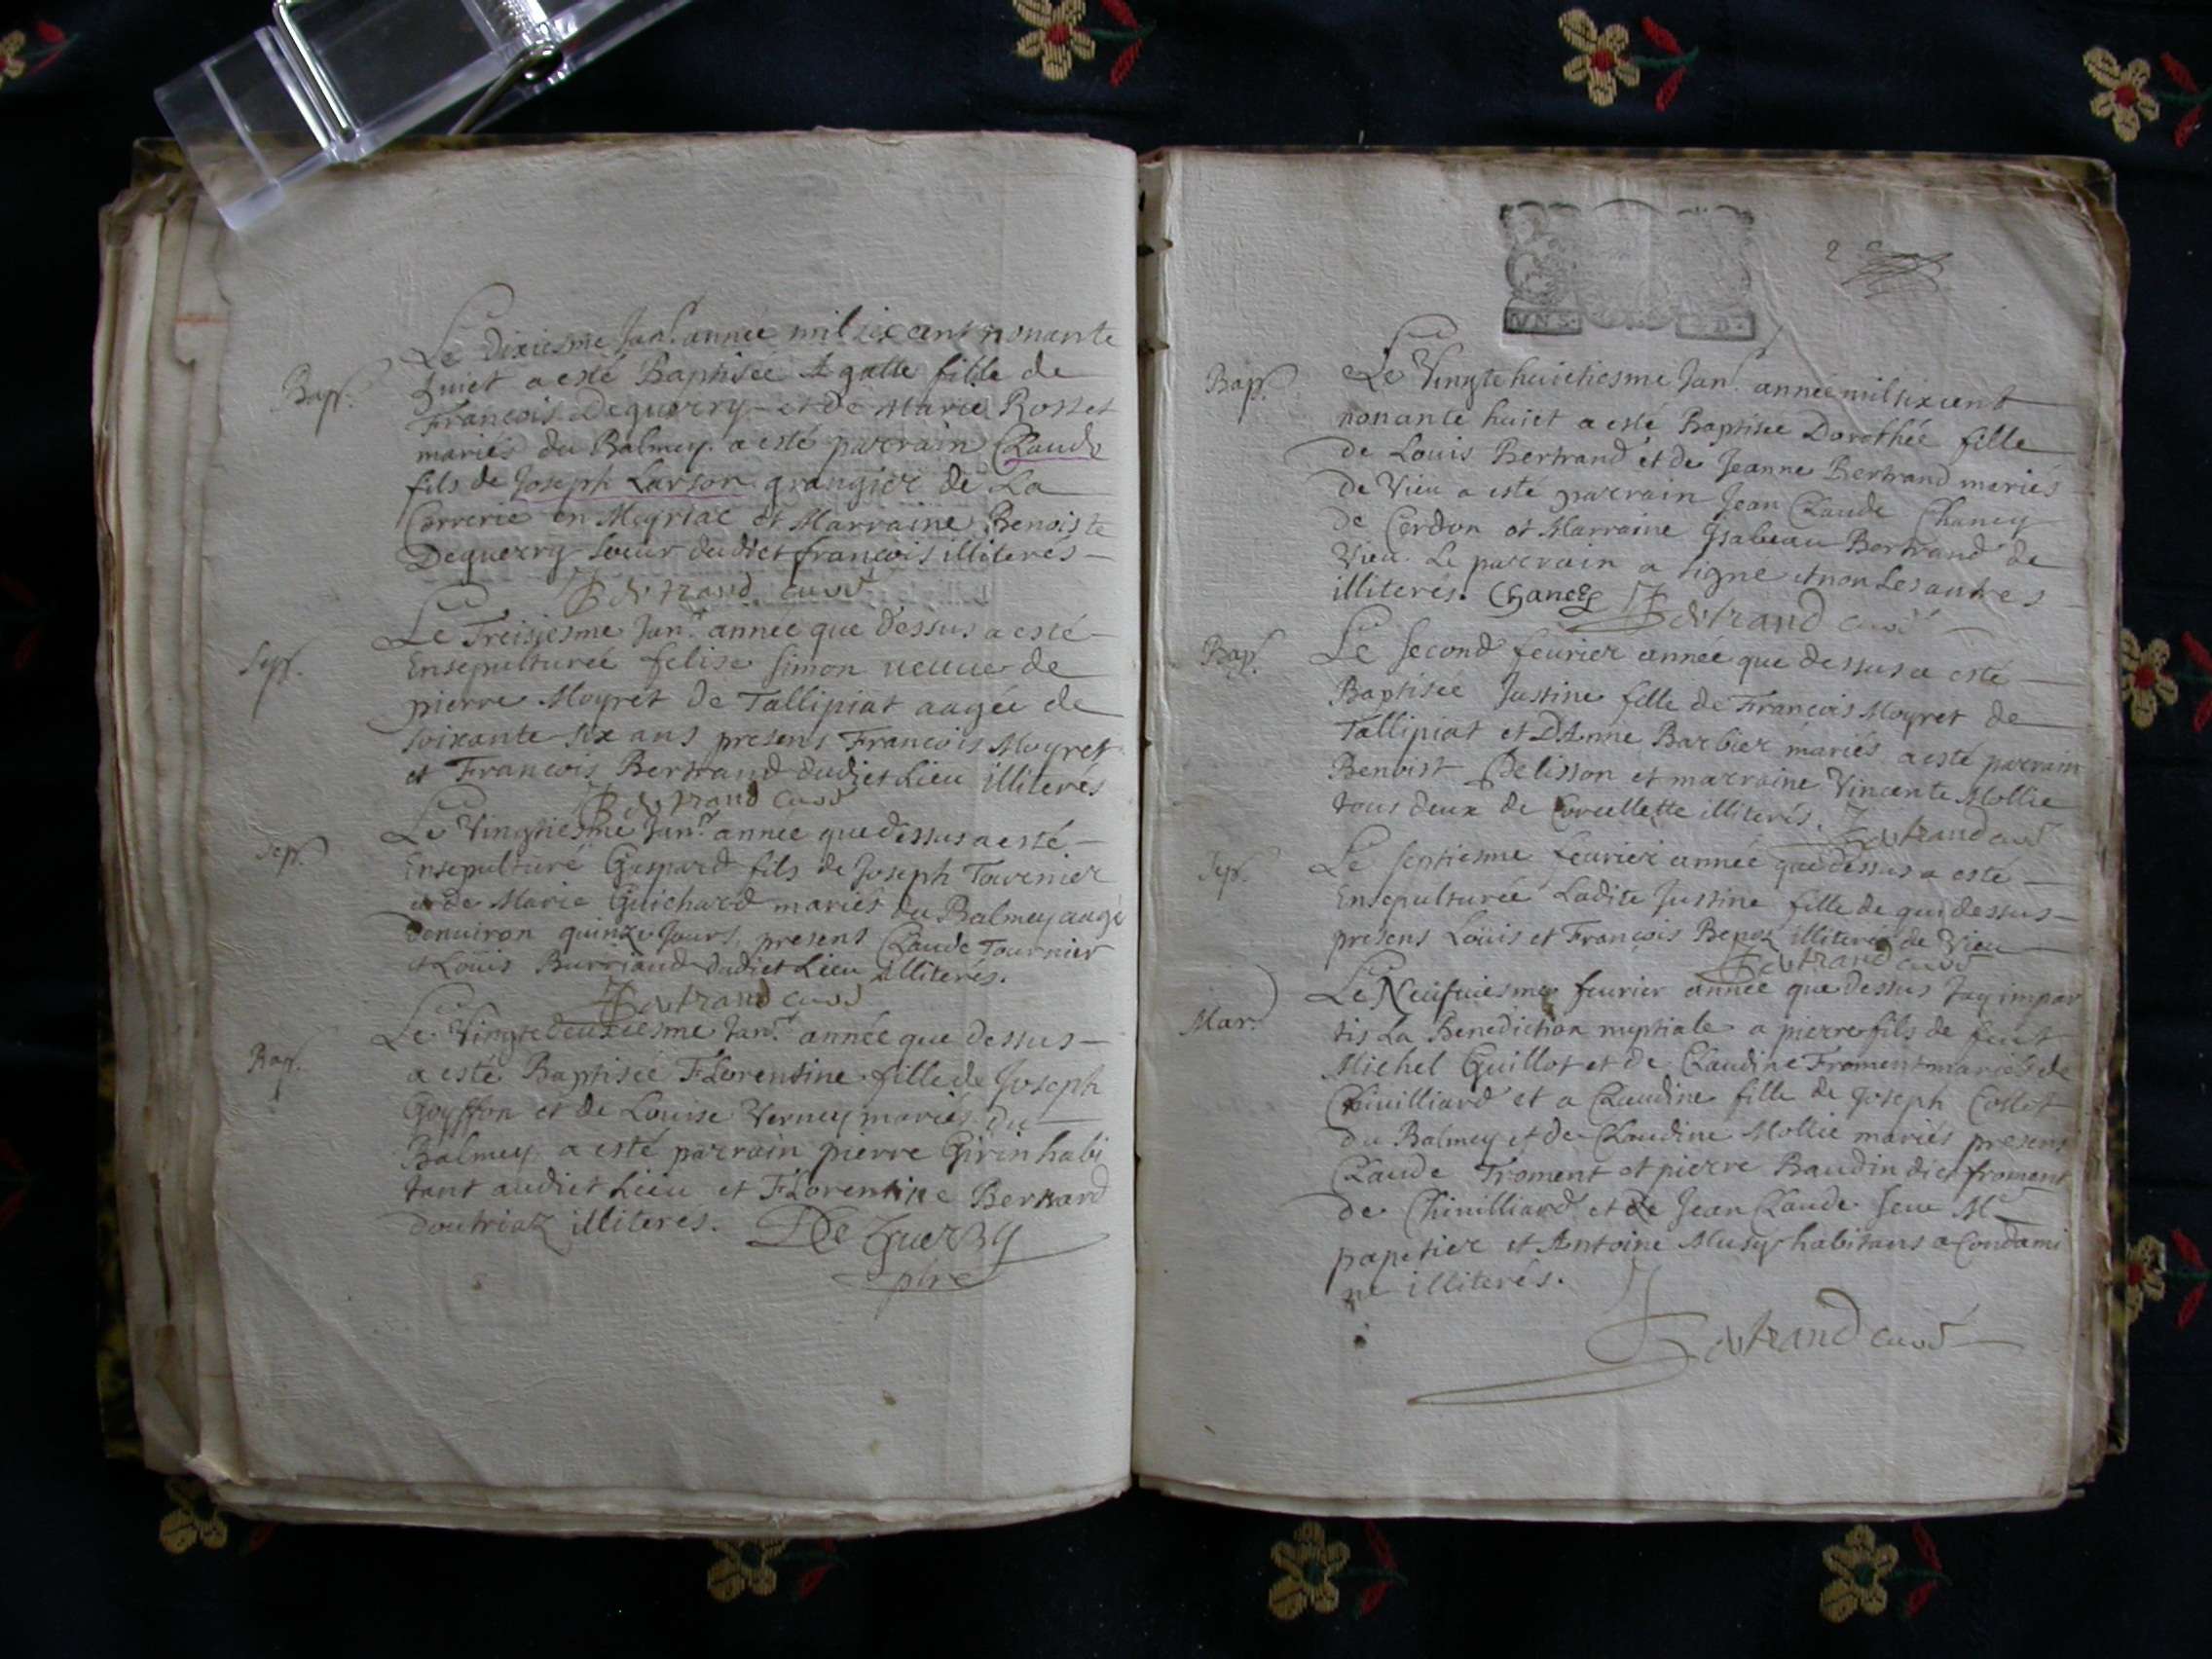 Le dixiesme Jan.r année mil six cent nonante
Bap.
huict a esté Baptisée Agatte fille de
Francois Dequerry et de Marie Rosset
mariés du Balmey. a esté parrain Claude
fils de Joseph Larson grangier de La
Correrie en Meyriac et Marraine Benoiste
Dequerry soeur dudict francois illiterés
Bertrand curé
Le Treisiesme Jan.r année que dessus a esté
Sep.
Ensepulturée felise Simon veuue de
pierre Moyret de Tallipiat aagée de
soixante six ans presens Francois Moyret
et Francois Bertrand dudict Lieu illiterés
Bertrand curé
Le Vingtiesme Jan.r année que dessus a esté
Sep.
Ensepulturé Gaspard fils de Joseph Tournier
et de Marie Guichard mariés du Balmey aagé
denuiron quinze Jours, presens Claude Tournier
et Loüis Burriand dudict Lieu illiterés.
Bertrand curé
Le Vingtedeuxiesme Jan.r année que dessus
Bap.
a esté Baptisée Florentine fille de Joseph
Goyffon et de Louise Verney mariés du
Balmey a esté parrain pierre Girin habi
tant audict Lieu et Florentine Bernard
doutriaz illiteres. De Querry
pbre
2
Le Vingtehuictiesme Jan.r année mil six cent
Bap.
nonante huict a esté Baptisée Dorothée fille
de Louis Bertrand et de Jeanne Bertrand mariés
de Vieu a esté parrain Jean Claude Chaney
de Cerdon et Marraine Ysabeau Bertrand de
Vieu. Le parrain a signe et non Les autres
illiterés. Chaney Bertrand curé
Bap.
Le second feurier année que dessus a esté
Baptisée Justine fille de Francois Moyret de
Tallipiat et D'Anne Barbier mariés a esté parrain
Benoist Pelisson et marraine Vincente Mollie
tous deux de Corcellette illiterés. Bertrand curé
Sep.
Le septiesme féurier année que dessus a esté
Ensepulturée Ladite Justine fille de qui dessus
presens Loüis et François illiterés de Vieu
Bertrand curé
Le Neufuiesme feurier année que dessus Jay impar
Mar.
tis La Benediction nuptiale a pierre fils de feut
Michel Guillot et de Claudine Froment mariés de
Chiuilliard et a Claudine fille de Joseph Collet
du Balmey et de Claudine Mollie mariés presens
Claude Froment et pierre Baudin dict froment
de Chiuilliard et de Jean Claude seue M.e
papetier et Antoine Musy habitans a Condami
ne illiterés.
Bertrand curé